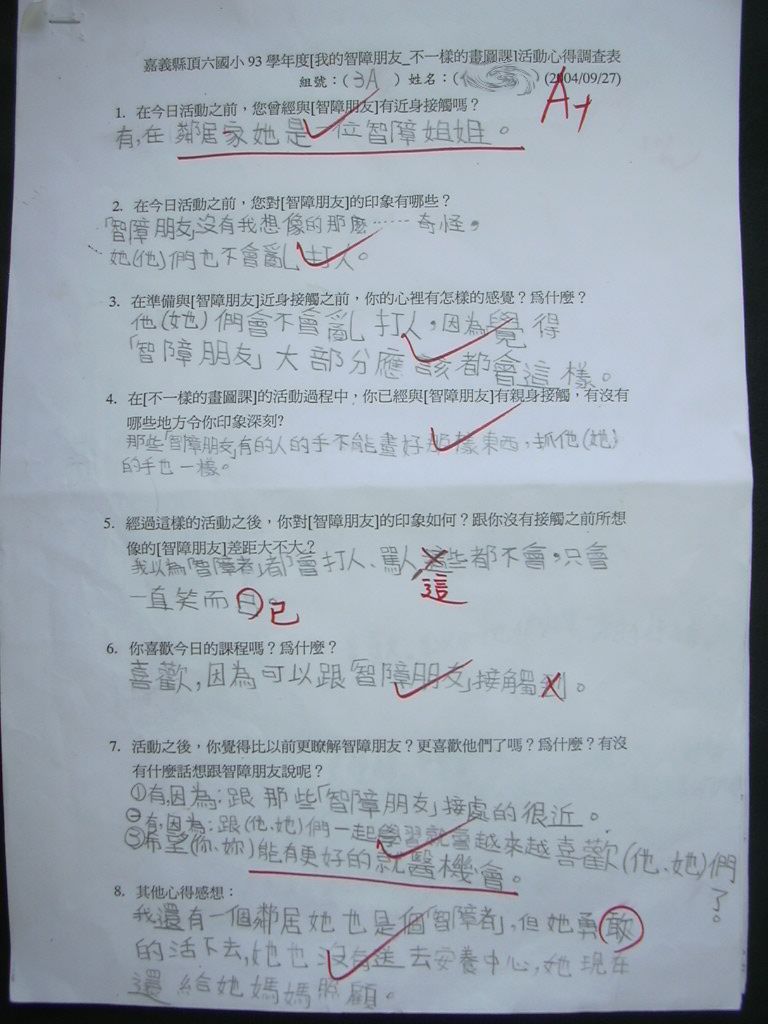 嘉義縣頂六國小 93 學年度[我的智障朋友_不一樣的畫圖課]活動心得調查表
組號：( 3A ) 姓名：( ) (2004/09/27)
A+
1. 在今日活動之前，您曾經與[智障朋友]有近身接觸嗎？
有,在鄰居家她是一位智障姐姐。
2. 在今日活動之前，您對[智障朋友]的印象有哪些？
「智障朋友」沒有我想像的那麼……奇怪，
她(他)們也不會亂打人。
3. 在準備與[智障朋友]近身接觸之前，你的心裡有怎樣的感覺？為什麼？
他(她)們會不會亂打人，因為覺得
「智障朋友」大部分應該都會這樣。
4. 在[不一樣的畫圖課]的活動過程中，你已經與[智障朋友]有親身接觸，有沒有
哪些地方令你印象深刻?
那些「智障朋友」有的人的手不能畫好那樣東西，抓他(她)
的手也一樣。
5. 經過這樣的活動之後，你對[智障朋友]的印象如何？跟你沒有接觸之前所想
像的[智障朋友]差距大不大？
我以為「智障者」都會打人、罵人,些都不會，只會
這
一直笑而日。已
6. 你喜歡今日的課程嗎？為什麼？
喜歡,因為可以跟「智障朋友」接觸到。
7. 活動之後，你覺得比以前更瞭解智障朋友？更喜歡他們了嗎？為什麼？有沒
有什麼話想跟智障朋友說呢？
①有,因為:跟那些「智障朋友」接處的很近。
②有,因為:跟(他、她)們一起學習就會越來越喜歡(他、她)們了。
③希望(你、妳)能有更好的就醫機會。
8. 其他心得感想：
我還有一個鄰居她也是個「智障者」,但她勇敢
的活下去,她也沒有送去安養中心,她現在
還給她媽媽照顧。